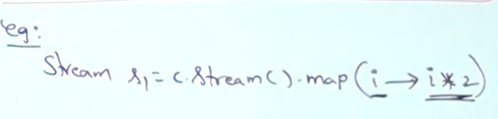 eg:
Stream s1 = c.stream().map(i → i*2)